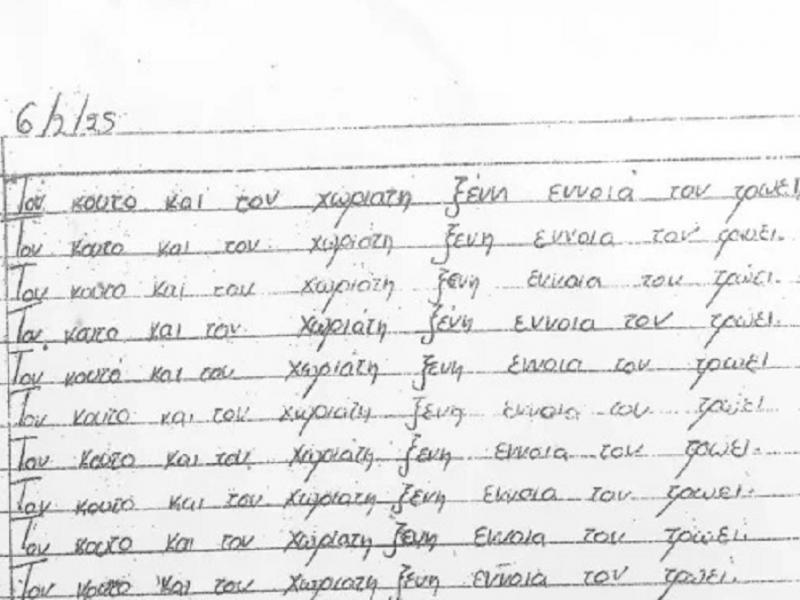 6/2/25
Τον κουτο και τον χωριατη ξένη εννοιά τον τρωει
Τον κουτο και τον χωριατη ξενη εννοια τον τρωει.
Τον κουτο και τον χωριάτη ξενη εννοια τον τρώει.
Τον κουτο και τον χωριάτη ξένη εννοια τον τρώει.
Τον κουτό και τον χωριάτη ξενη έννοια τον τρωει
Τον κουτο και τον χωριατη ξενη εννοια τον τρώει
Τον κουτο και τον χωριατη ξενη εννοια τον τρωει.
Τον κουτο και τον χωριατη ξενη εννοια τον τρωει.
Τον κουτο και τον χωριατη ξενη εννοια τον τρωει.
Τον κουτο και τον χωριατη ξενη εννοια τον τρωει.